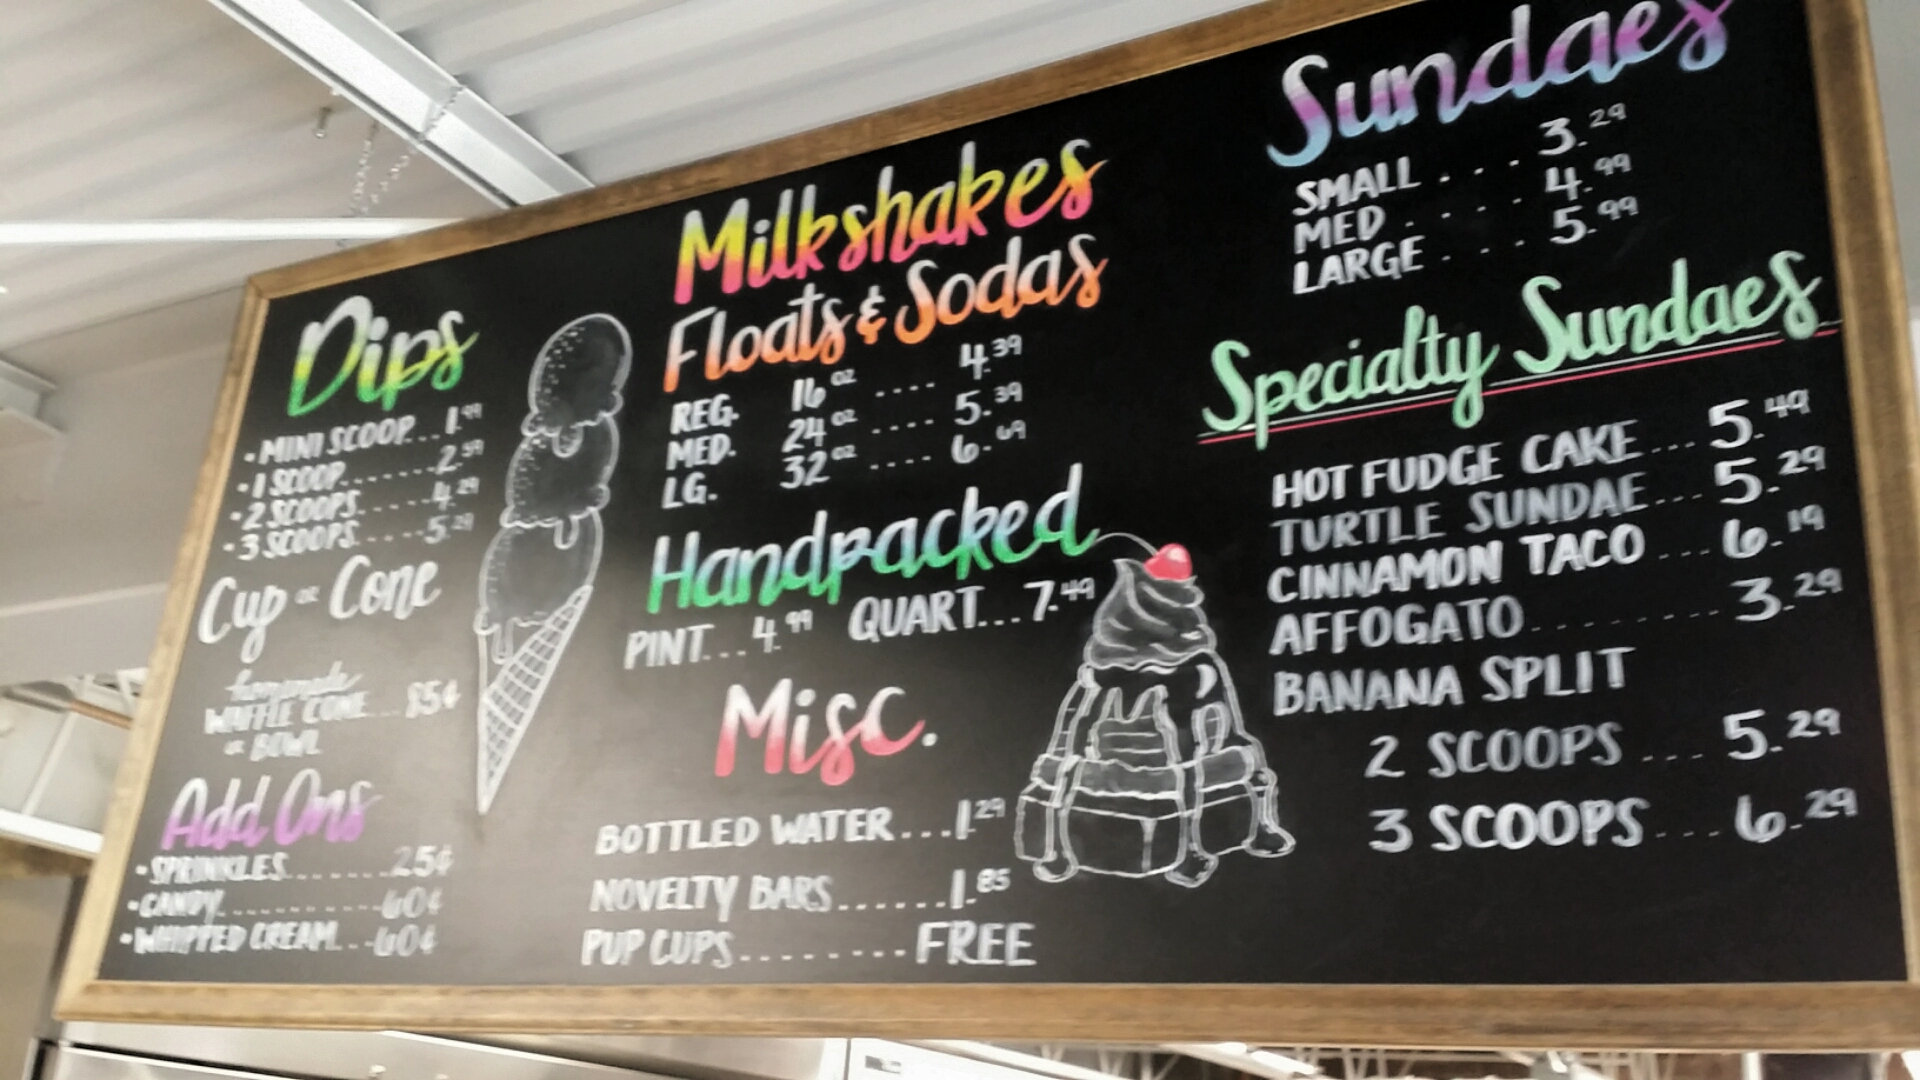 Dips
• MINI SCOOP...1.99
• 1 SCOOP.......2.59
• 2 SCOOPS.....4.29
• 3 SCOOPS.....5.29
Cup or Cone
homemade
WAFFLE CONE...85¢
or BOWL
Add Ons
• SPRINKLES.......25¢
• CANDY...........60¢
• WHIPPED CREAM...60¢
Milkshakes
Floats & Sodas
REG. 16 oz .... 4.39
MED. 24 oz .... 5.39
LG. 32 oz .... 6.69
Handpacked
PINT...4.99 QUART...7.49
Misc.
BOTTLED WATER...1.29
NOVELTY BARS......1.85
PUP CUPS.........FREE
Sundaes
SMALL ... 3.29
MED .... 4.99
LARGE ... 5.99
Specialty Sundaes
HOT FUDGE CAKE...5.49
TURTLE SUNDAE...5.29
CINNAMON TACO...6.19
AFFOGATO........3.29
BANANA SPLIT
2 SCOOPS ... 5.29
3 SCOOPS ... 6.29